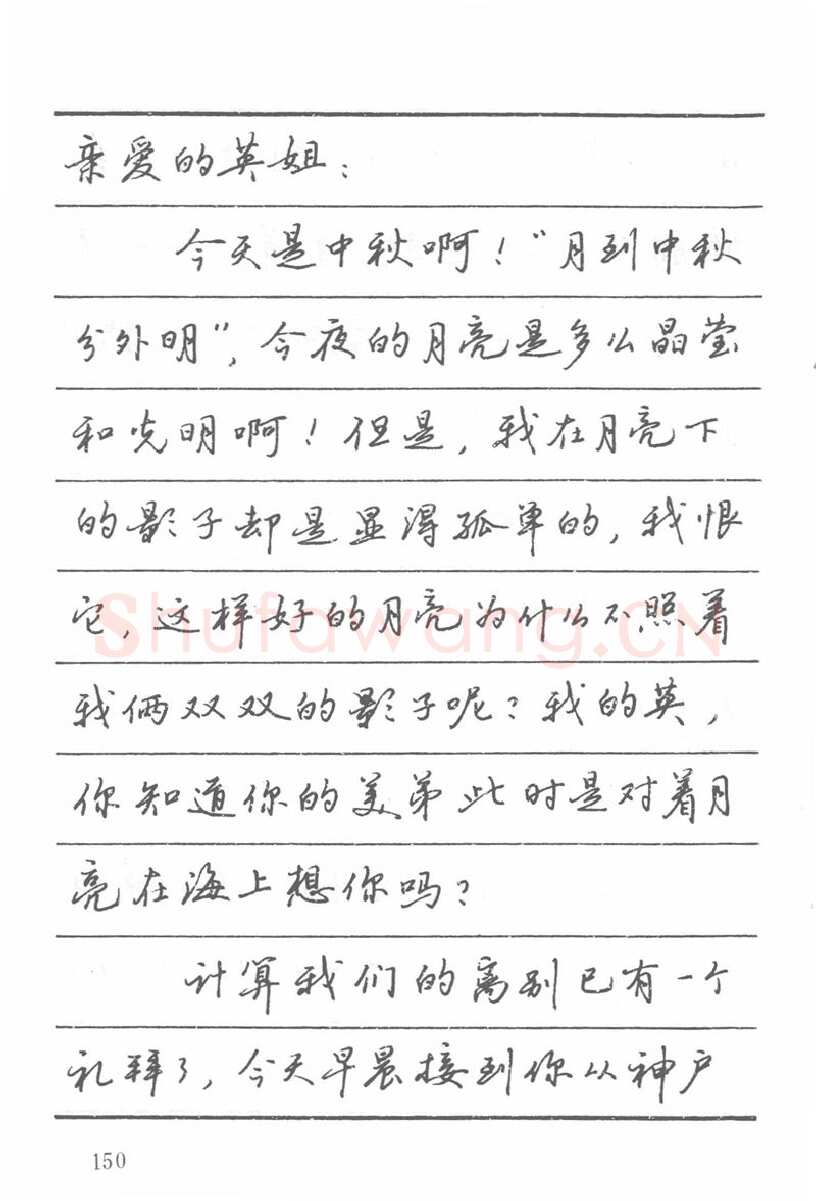 亲爱的英姐：
今天是中秋啊！“月到中秋
分外明”，今夜的月亮是多么晶莹
和光明啊！但是，我在月亮下
的影子却是显得孤单的，我恨
它，这样好的月亮为什么不照着
我俩双双的影子呢？我的英，
你知道你的美弟此时是对着月
亮在海上想你吗？
计算我们的离别已有一个
礼拜了，今天早晨接到你从神户
Shufawang.CN
150